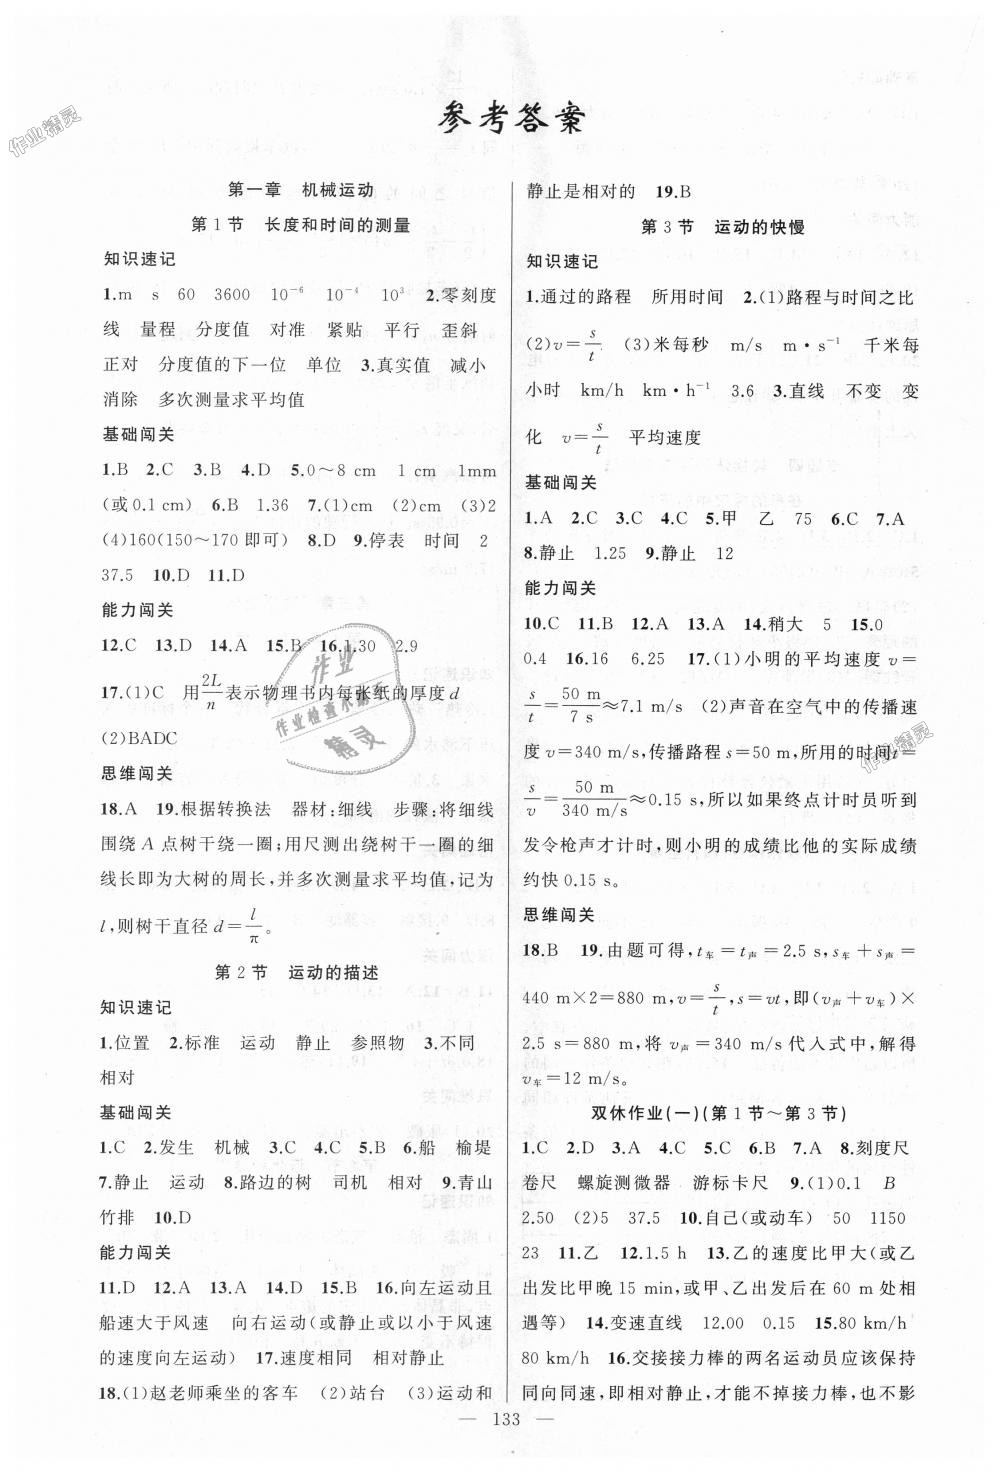 参考答案
第一章　机械运动
第1节　长度和时间的测量
知识速记
1.m　s　60　3600　10⁻⁶　10⁻⁴　10³　2.零刻度
线　量程　分度值　对准　紧贴　平行　歪斜
正对　分度值的下一位　单位　3.真实值　减小
消除　多次测量求平均值
基础闯关
1.B　2.C　3.B　4.D　5.0～8 cm　1 cm　1mm
(或0.1 cm)　6.B　1.36　7.(1)cm　(2)cm　(3)2
(4)160(150～170即可)　8.D　9.停表　时间　2
37.5　10.D　11.D
能力闯关
12.C　13.D　14.A　15.B　16.1.30　2.9
17.(1)C　用2L/n表示物理书内每张纸的厚度d
(2)BADC
思维闯关
18.A　19.根据转换法　器材:细线　步骤:将细线
围绕A点树干绕一圈;用尺测出绕树干一圈的细
线长即为大树的周长,并多次测量求平均值,记为
l,则树干直径d=l/π。
第2节　运动的描述
知识速记
1.位置　2.标准　运动　静止　参照物　3.不同
相对
基础闯关
1.C　2.发生　机械　3.C　4.C　5.B　6.船　榆堤
7.静止　运动　8.路边的树　司机　相对　9.青山
竹排　10.D
能力闯关
11.D　12.A　13.A　14.D　15.B　16.向左运动且
船速大于风速　向右运动(或静止或以小于风速
的速度向左运动)　17.速度相同　相对静止
18.(1)赵老师乘坐的客车　(2)站台　(3)运动和
静止是相对的　19.B
第3节　运动的快慢
知识速记
1.通过的路程　所用时间　2.(1)路程与时间之比
(2)v=s/t　(3)米每秒　m/s　m·s⁻¹　千米每
小时　km/h　km·h⁻¹　3.6　3.直线　不变　变
化　v=s/t　平均速度
基础闯关
1.A　2.C　3.C　4.C　5.甲　乙　75　6.C　7.A
8.静止　1.25　9.静止　12
能力闯关
10.C　11.B　12.A　13.A　14.稍大　5　15.0
0.4　16.16　6.25　17.(1)小明的平均速度v=
s/t=50 m/7 s≈7.1 m/s　(2)声音在空气中的传播速
度v=340 m/s,传播路程s=50 m,所用的时间t=
s/v=50 m/340 m/s≈0.15 s,所以如果终点计时员听到
发令枪声才计时,则小明的成绩比他的实际成绩
约快0.15 s。
思维闯关
18.B　19.由题可得,t车=t声=2.5 s,s车+s声=
440 m×2=880 m,v=s/t,s=vt,即(v声+v车)×
2.5 s=880 m,将v声=340 m/s代入式中,解得
v车=12 m/s。
双休作业(一)(第1节～第3节)
1.C　2.D　3.A　4.C　5.C　6.B　7.A　8.刻度尺
卷尺　螺旋测微器　游标卡尺　9.(1)0.1　B
2.50　(2)5　37.5　10.自己(或动车)　50　1150
23　11.乙　12.1.5 h　13.乙的速度比甲大(或乙
出发比甲晚15 min,或甲、乙出发后在60 m处相
遇等)　14.变速直线　12.00　0.15　15.80 km/h
80 km/h　16.交接接力棒的两名运动员应该保持
同向同速,即相对静止,才能不掉接力棒,也不影
— 133 —
作业精灵
作业
作业检查小助手
精灵
作业精灵